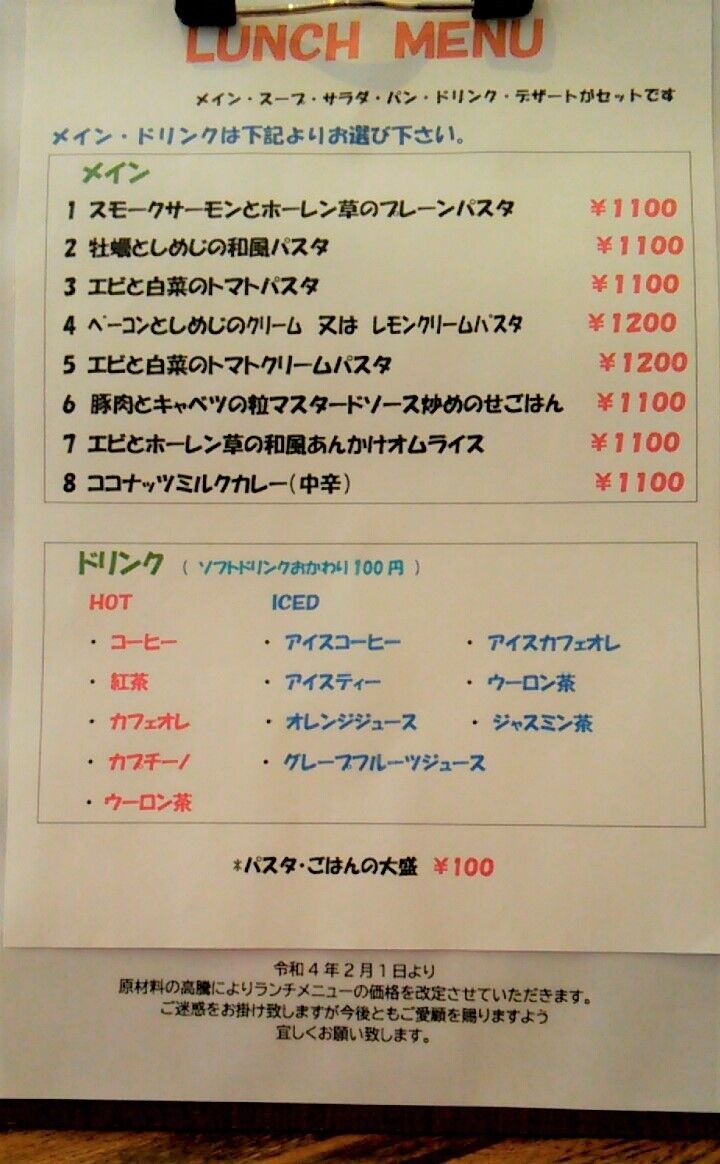 LUNCH MENU
メイン・スープ・サラダ・パン・ドリンク・デザートがセットです
メイン・ドリンクは下記よりお選び下さい。
メイン
1 スモークサーモンとホーレン草のプレーンパスタ ￥1100
2 牡蠣としめじの和風パスタ ￥1100
3 エビと白菜のトマトパスタ ￥1100
4 ベーコンとしめじのクリーム 又は レモンクリームパスタ ￥1200
5 エビと白菜のトマトクリームパスタ ￥1200
6 豚肉とキャベツの粒マスタードソース炒めのせごはん ￥1100
7 エビとホーレン草の和風あんかけオムライス ￥1100
8 ココナッツミルクカレー（中辛） ￥1100
ドリンク （ ソフトドリンクおかわり100円 ）
HOT ICED
・コーヒー ・アイスコーヒー ・アイスカフェオレ
・紅茶 ・アイスティー ・ウーロン茶
・カフェオレ ・オレンジジュース ・ジャスミン茶
・カプチーノ ・グレープフルーツジュース
・ウーロン茶
*パスタ・ごはんの大盛 ￥100
令和４年２月１日より
原材料の高騰によりランチメニューの価格を改定させていただきます。
ご迷惑をお掛け致しますが今後ともご愛顧を賜りますよう
宜しくお願い致します。